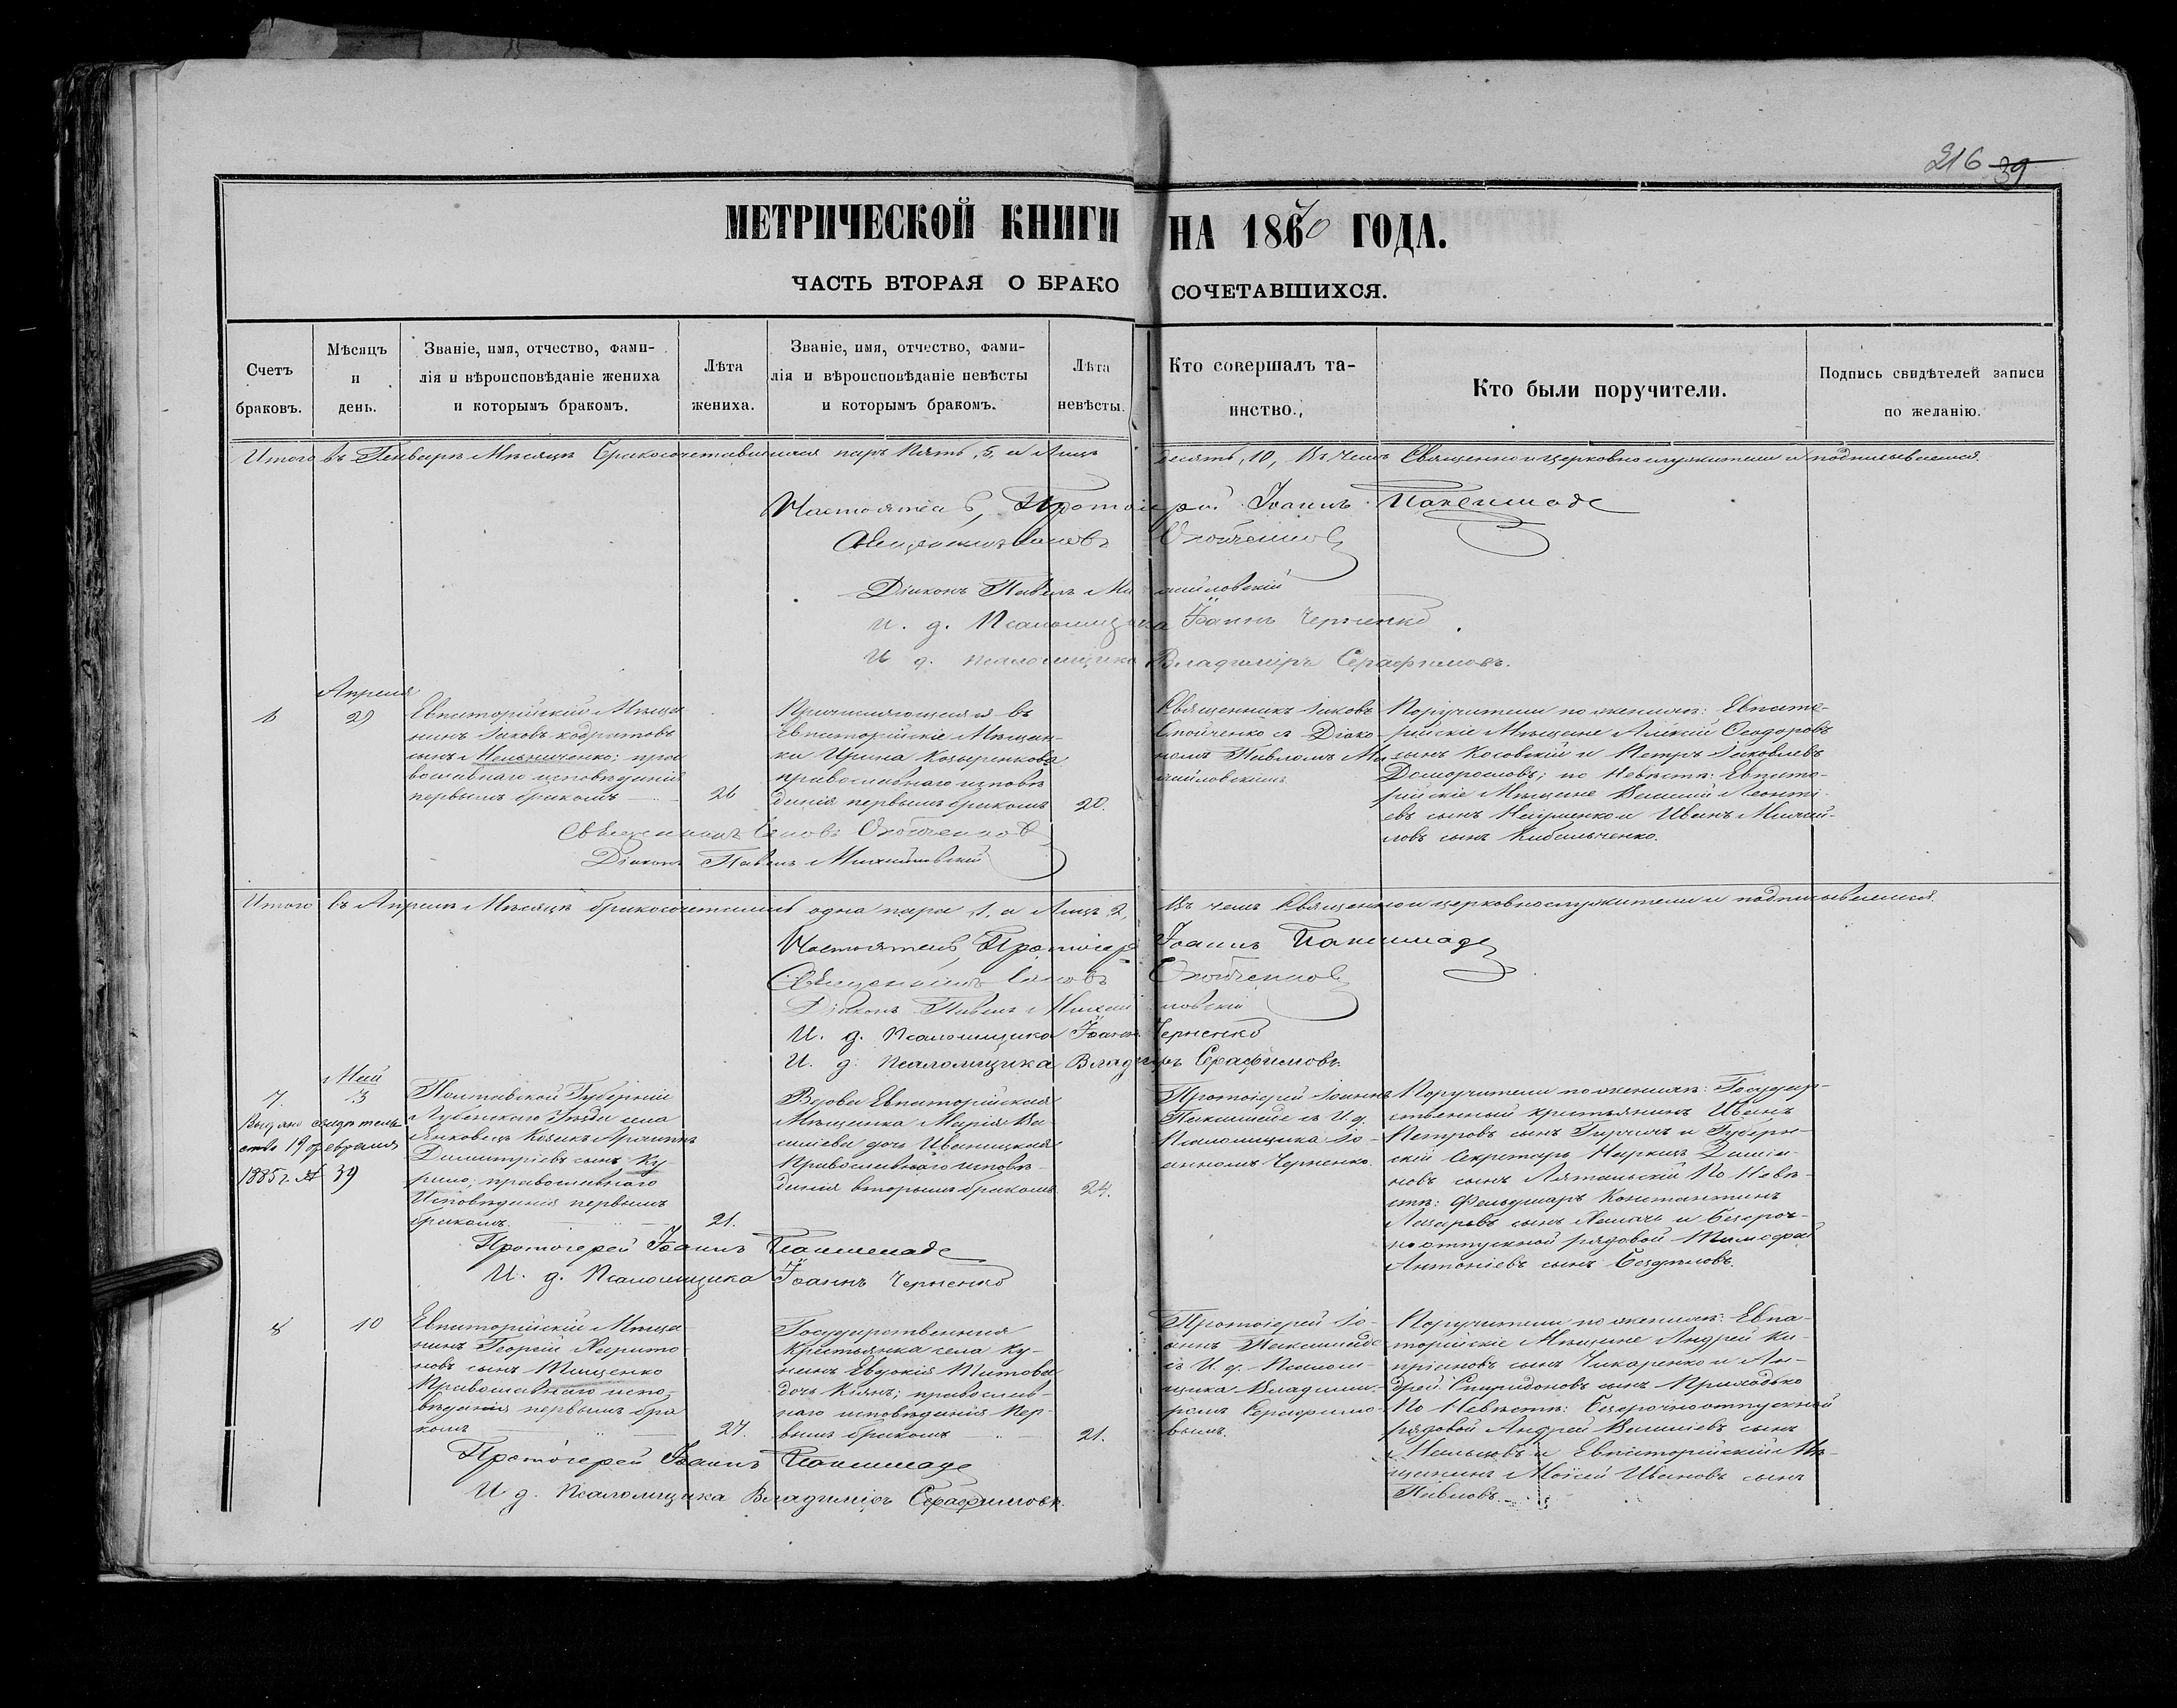 216 39
МЕТРИЧЕСКОЙ КНИГИ НА 1870 ГОДА.
ЧАСТЬ ВТОРАЯ О БРАКОСОЧЕТАВШИХСЯ.
Счетъ браковъ.
Мѣсяцъ и день.
Званіе, имя, отчество, фамилія и вѣроисповѣданіе жениха и которымъ бракомъ.
Лѣта жениха.
Званіе, имя, отчество, фамилія и вѣроисповѣданіе невѣсты и которымъ бракомъ.
Лѣта невѣсты.
Кто совершалъ таинство.
Кто были поручители.
Подпись свидѣтелей записи по желанію.
Итого въ Генварѣ Мѣсяцѣ бракосочетавшихся паръ пять, 5, а Лицъ десять, 10, Въ чемъ Священно и церковнослужители и подписываемся.
Настоятель, Протоіерей Іоаннъ Пакшмаде
Священникъ Іаковъ
Діаконъ Павелъ Михайловскій
И. д. Псаломщика Іоаннъ Черненко
И д. псаломщика Владиміръ Серафимовъ.
Апрѣля
29
Евпаторійскій Мѣща-
нинъ Іаковъ
сынъ Мельниченко; пра-
вославнаго исповѣданія
первымъ бракомъ
26
Причисляющаяся въ
Евпаторійскіе Мѣщан-
ки Ирина Козыренкова
православнаго исповѣ
данія первымъ бракомъ
20.
Священникъ Іаковъ
и Діако-
номъ Павломъ Ми-
хайловскимъ
Поручители по женихѣ: Евпато-
рійскіе Мѣщане Алексій Ѳеодоровъ
сынъ Косовскій и Петръ Яковлевъ
Доморословъ; по Невѣстѣ: Евпато-
рійскіе Мѣщане Василій Леонті-
евъ сынъ Науменко и Иванъ Михай-
ловъ сынъ Кибальченко.
Священникъ Іаковъ
Діаконъ Павелъ Михайловскій
Итого въ Апрѣлѣ Мѣсяцѣ бракосочеталась одна пара 1, а Лицъ 2, Въ чемъ Священно и церковнослужители и подписываемся.
Настоятель, Протоіерей Іоаннъ Пакшмаде
Священникъ Іаковъ
Діаконъ Павелъ Михайловскій
И. д. Псаломщика Іоаннъ Черненко
И. д. Псаломщика Владиміръ Серафимовъ.
Май
7. 3
Выдано свидѣтель-
ство 19 февраля
1885 г. № 39
Полтавской Губерніи
Лубенскаго Уѣзда села
Яновецъ Козакъ
Димитріевъ сынъ Ку-
рило; православнаго
Исповѣданія первымъ
бракомъ.
21.
Вдова Евпаторійская
Мѣщанка Марія Ва-
силіева дочь Иваницкая
Православнаго исповѣ-
данія вторымъ бракомъ
24.
Протоіерей Іоаннъ
Пакшмаде съ И. д.
Псаломщика Іо-
анномъ Черненко.
Поручители по женихѣ: Государ-
ственный крестьянинъ Иванъ
Петровъ сынъ и Губерн-
скій Секретарь
сынъ По Невѣ-
стѣ: Фельдшеръ Константинъ
Лазаревъ сынъ и безсроч-
ноотпускной рядовой Тимофей
Антоніевъ сынъ
Протоіерей Іоаннъ Пакшмаде
И. д. Псаломщика Іоаннъ Черненко
8 10
Евпаторійскій Мѣща-
нинъ Георгій Харито-
новъ сынъ Тищенко
Православнаго испо-
вѣданія первымъ бра
комъ
27.
Государственная
Крестьянка села Ку-
Евдокія Титова
дочь православ-
наго исповѣданія Пер-
вымъ бракомъ
21.
Протоіерей Іо-
аннъ Пакшмаде
съ И. д. Псалом-
щика Владими-
ромъ Серафимо-
вымъ.
Поручители по женихѣ: Евпа-
торійскіе Мѣщане Андрей Ки-
пріановъ сынъ Чикаренко и Ан-
дрей Спиридоновъ сынъ Приходько
По Невѣстѣ: Безсрочноотпускной
рядовой Андрей Василіевъ сынъ
Мальцовъ и Евпаторійскій Мѣ-
щанинъ Моисей Ивановъ сынъ
Павловъ.
Протоіерей Іоаннъ Пакшмаде
И д. Псаломщика Владиміръ Серафимовъ.